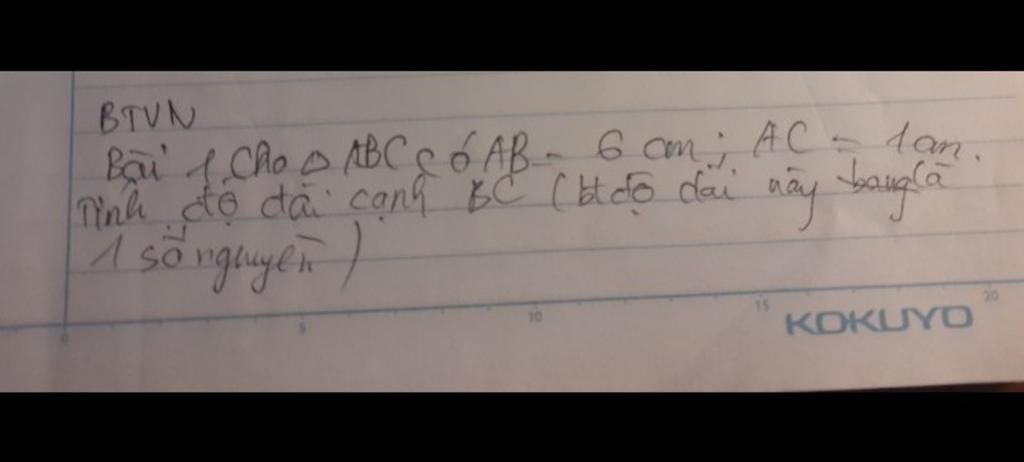 BTVN
Bài 1 Cho △ABC có AB = 6 cm; AC = 1cm.
Tính độ dài cạnh BC (bt độ dài này là
1 số nguyên)
0 5 10 15 20
KOKUYO